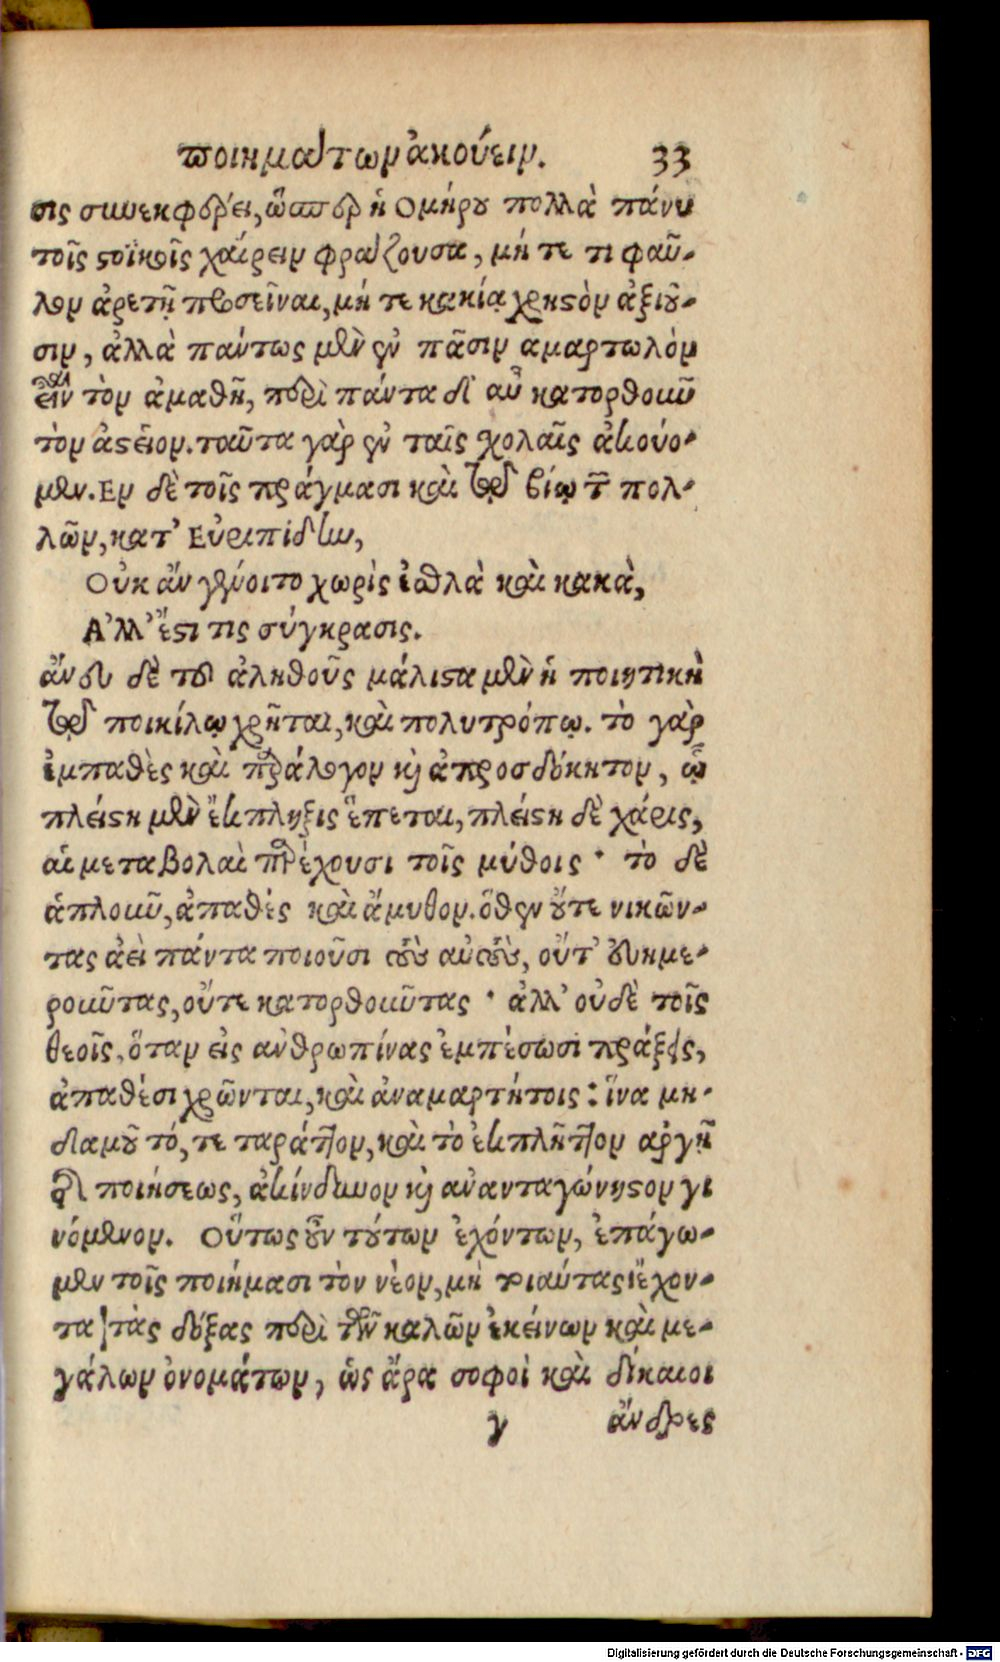 ποιημάτων ἀκούειν. 33
σις συνεκφέρει, ὥσπερ ἡ Ομήρου πολλὰ πάνυ
τοῖς στοϊκοῖς χαίρειν φράζουσα, μή τε τι φαῦ-
λον ἀρετῇ προσεῖναι, μή τε κακίᾳ χρηστὸν ἀξιοῦ-
σιν, ἀλλὰ πάντως μὲν ἐν πᾶσιν αμαρτωλὸν
εἶναι τὸν ἀμαθῆ, περὶ πάντα δ' αὖ κατορθοῦν
τὸν ἀστεῖον. ταῦτα γὰρ ἐν ταῖς σχολαῖς ἀκούο-
μεν. Εν δὲ τοῖς πράγμασι καὶ τῷ βίῳ τῶν πολ-
λῶν, κατ' Εὐριπίδην,
Οὐκ ἄν γένοιτο χωρὶς ἐσθλὰ καὶ κακὰ,
Αλλ' ἔστι τις σύγκρασις.
ἄνευ δὲ τοῦ ἀληθοῦς μάλιστα μὲν ἡ ποιητικὴ
τῷ ποικίλῳ χρῆται, καὶ πολυτρόπῳ. τὸ γὰρ
ἐμπαθὲς καὶ παράλογον καὶ ἀπροσδόκητον, ᾧ
πλείστη μὲν ἔκπληξις ἕπεται, πλείστη δὲ χάρις,
αἱ μεταβολαὶ παρέχουσι τοῖς μύθοις · τὸ δὲ
ἁπλοῦν, ἀπαθές καὶ ἄμυθον. ὅθεν οὔτε νικῶν-
τας ἀεὶ πάντα ποιοῦσι τοὺς αὐτοὺς, οὔτ' εὐημε-
ροῦντας, οὔτε κατορθοῦντας · ἀλλ' οὐδὲ τοῖς
θεοῖς, ὅταν εἰς ανθρωπίνας ἐμπέσωσι πράξεις,
ἀπαθέσι χρῶνται, καὶ ἀναμαρτήτοις : ἵνα μη-
δαμοῦ τό, τε ταράττον, καὶ τὸ ἐκπλῆττον αργῇ
τῆς ποιήσεως, ἀκίνδυνον καὶ ανανταγώνηστον γι
νόμενον. Οὕτως οὖν τούτων ἐχόντων, ἐπάγω-
μεν τοῖς ποιήμασι τὸν νέον, μὴ τοιαύτας ἔχον-
τα τὰς δόξας περὶ τῶν καλῶν ἐκείνων καὶ με-
γάλων ὀνομάτων, ὡς ἄρα σοφοὶ καὶ δίκαιοι
γ ἄνδρες
Digitalisierung gefördert durch die Deutsche Forschungsgemeinschaft - DFG